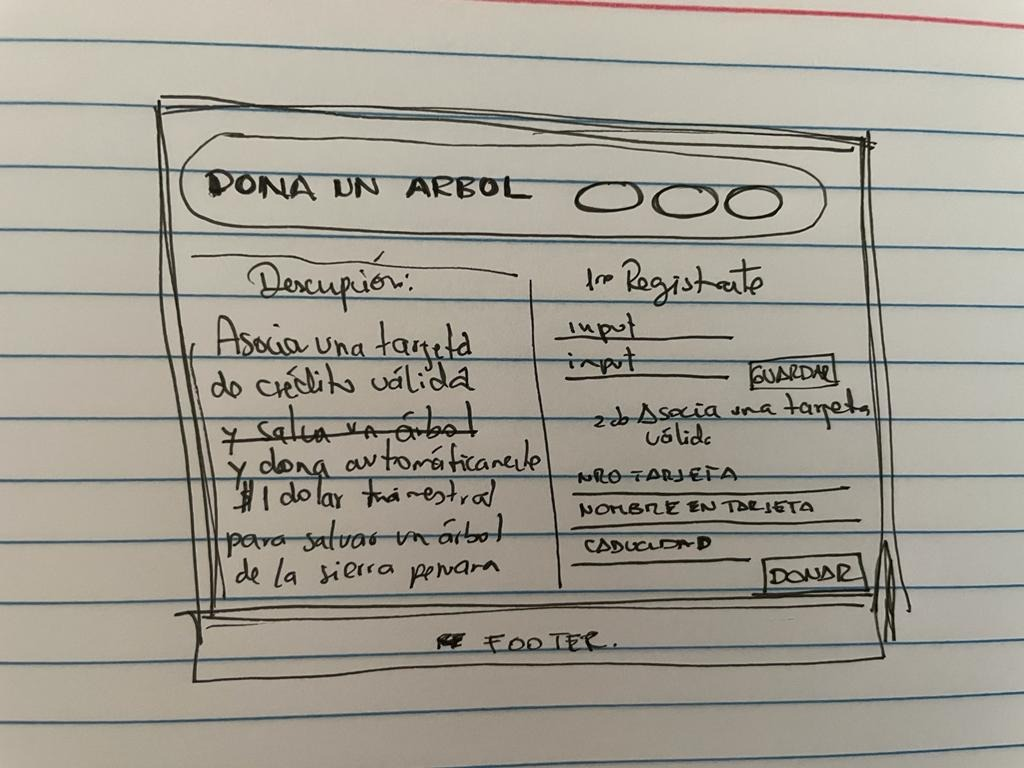 DONA UN ARBOL
Descripción:
Asocia una tarjeta
de crédito válida
y salva un árbol
y dona automáticamente
$1 dolar trimestral
para salvar un árbol
de la sierra peruana
1ro Registrate
input
input
GUARDAR
2do Asocia una tarjeta
válida
NRO TARJETA
NOMBRE EN TARJETA
CADUCIDAD
DONAR
FOOTER.